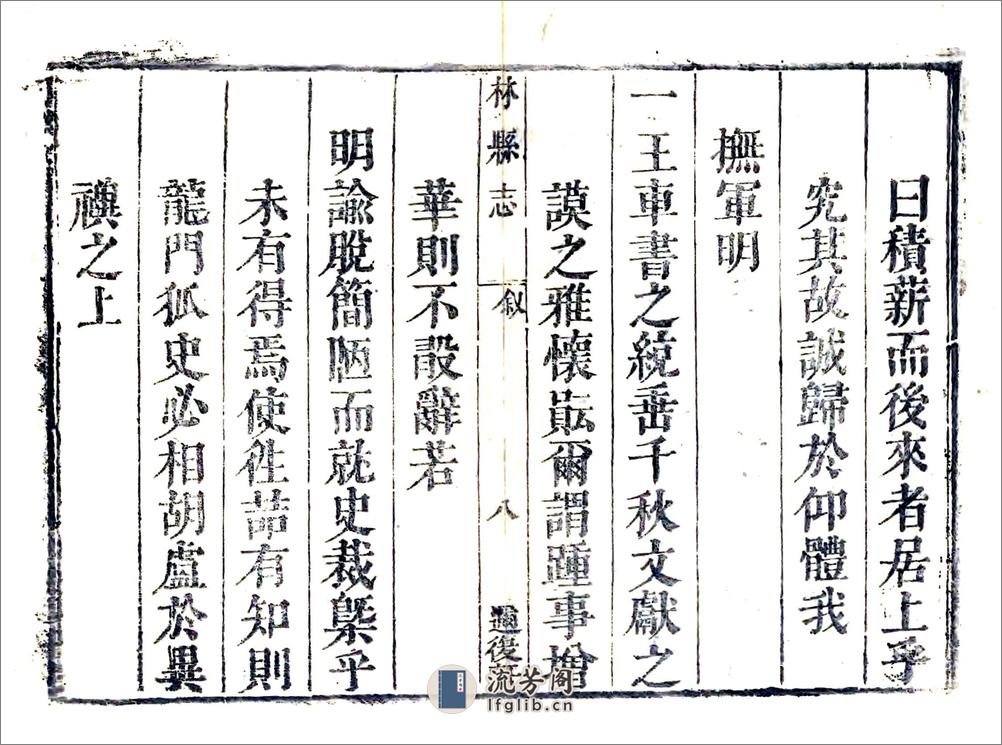 曰積薪而後來者居上乎
究其故誠歸於仰體我
撫軍明
一王車書之統垂千秋文獻之
謨之雅懷貺爾謂踵事增
華則不敢辭若
林縣志 叙 八
明諭脫簡陋而就史裁槩乎
未有得焉使徃喆有知則
龍門狐史必相胡盧於異
禩之上
流芳阁
lfglib.cn